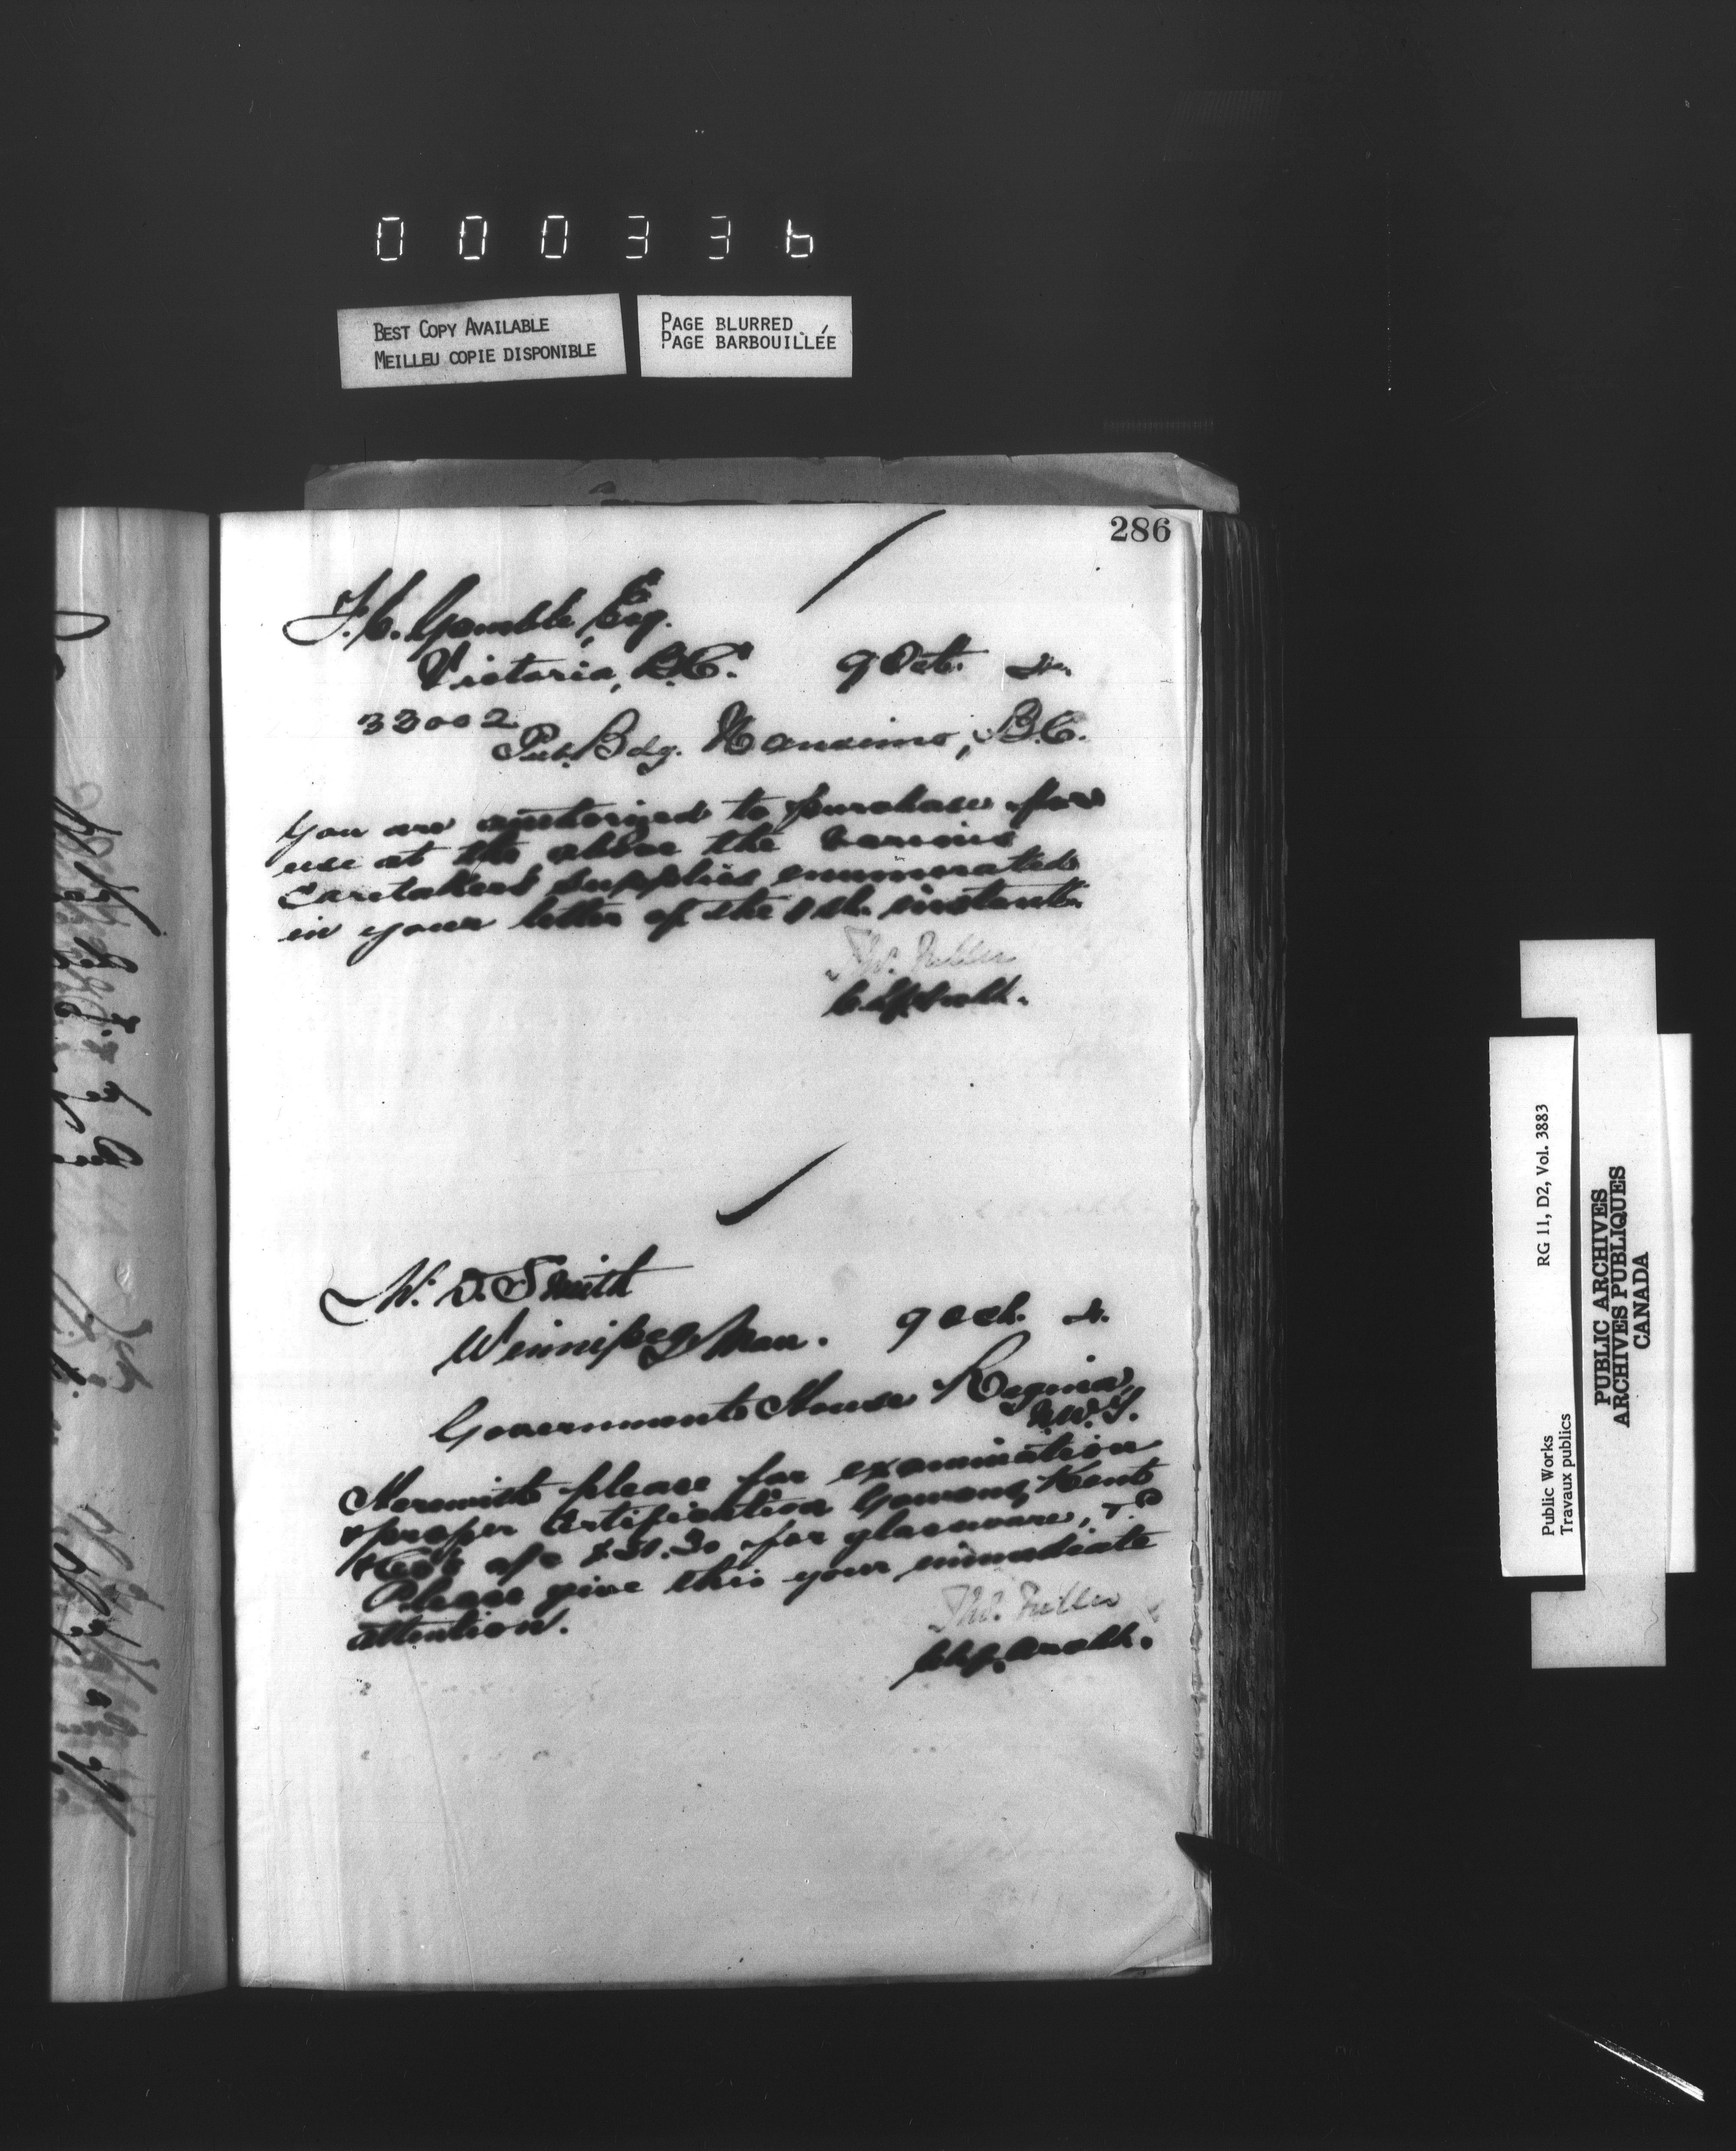 000336
BEST COPY AVAILABLE
MEILLEU COPIE DISPONIBLE
PAGE BLURRED
PAGE BARBOUILLÉE
286
F.C. Gamble, Esq.
Victoria, B.C. 9 Oct.
33002
Pub. Bdg. Nanaimo, B.C.
You are authorized to purchase for
use at the above the various
Caretakers supplies enumerated
in your letter of the instant.
Thos. Fuller
Ch. Archt.
W. T. Smith
Winnipeg Man. 9 Oct.
Government House Regina,
N.W.T.
Herewith please for examination
& proper certification Gowans, Kent
& Co's a/c for glassware, &c
Please give this your immediate
attention.
Thos. Fuller
Ch. Archt.
RG 11, D2, Vol. 3883
Public Works
Travaux publics
PUBLIC ARCHIVES
ARCHIVES PUBLIQUES
CANADA